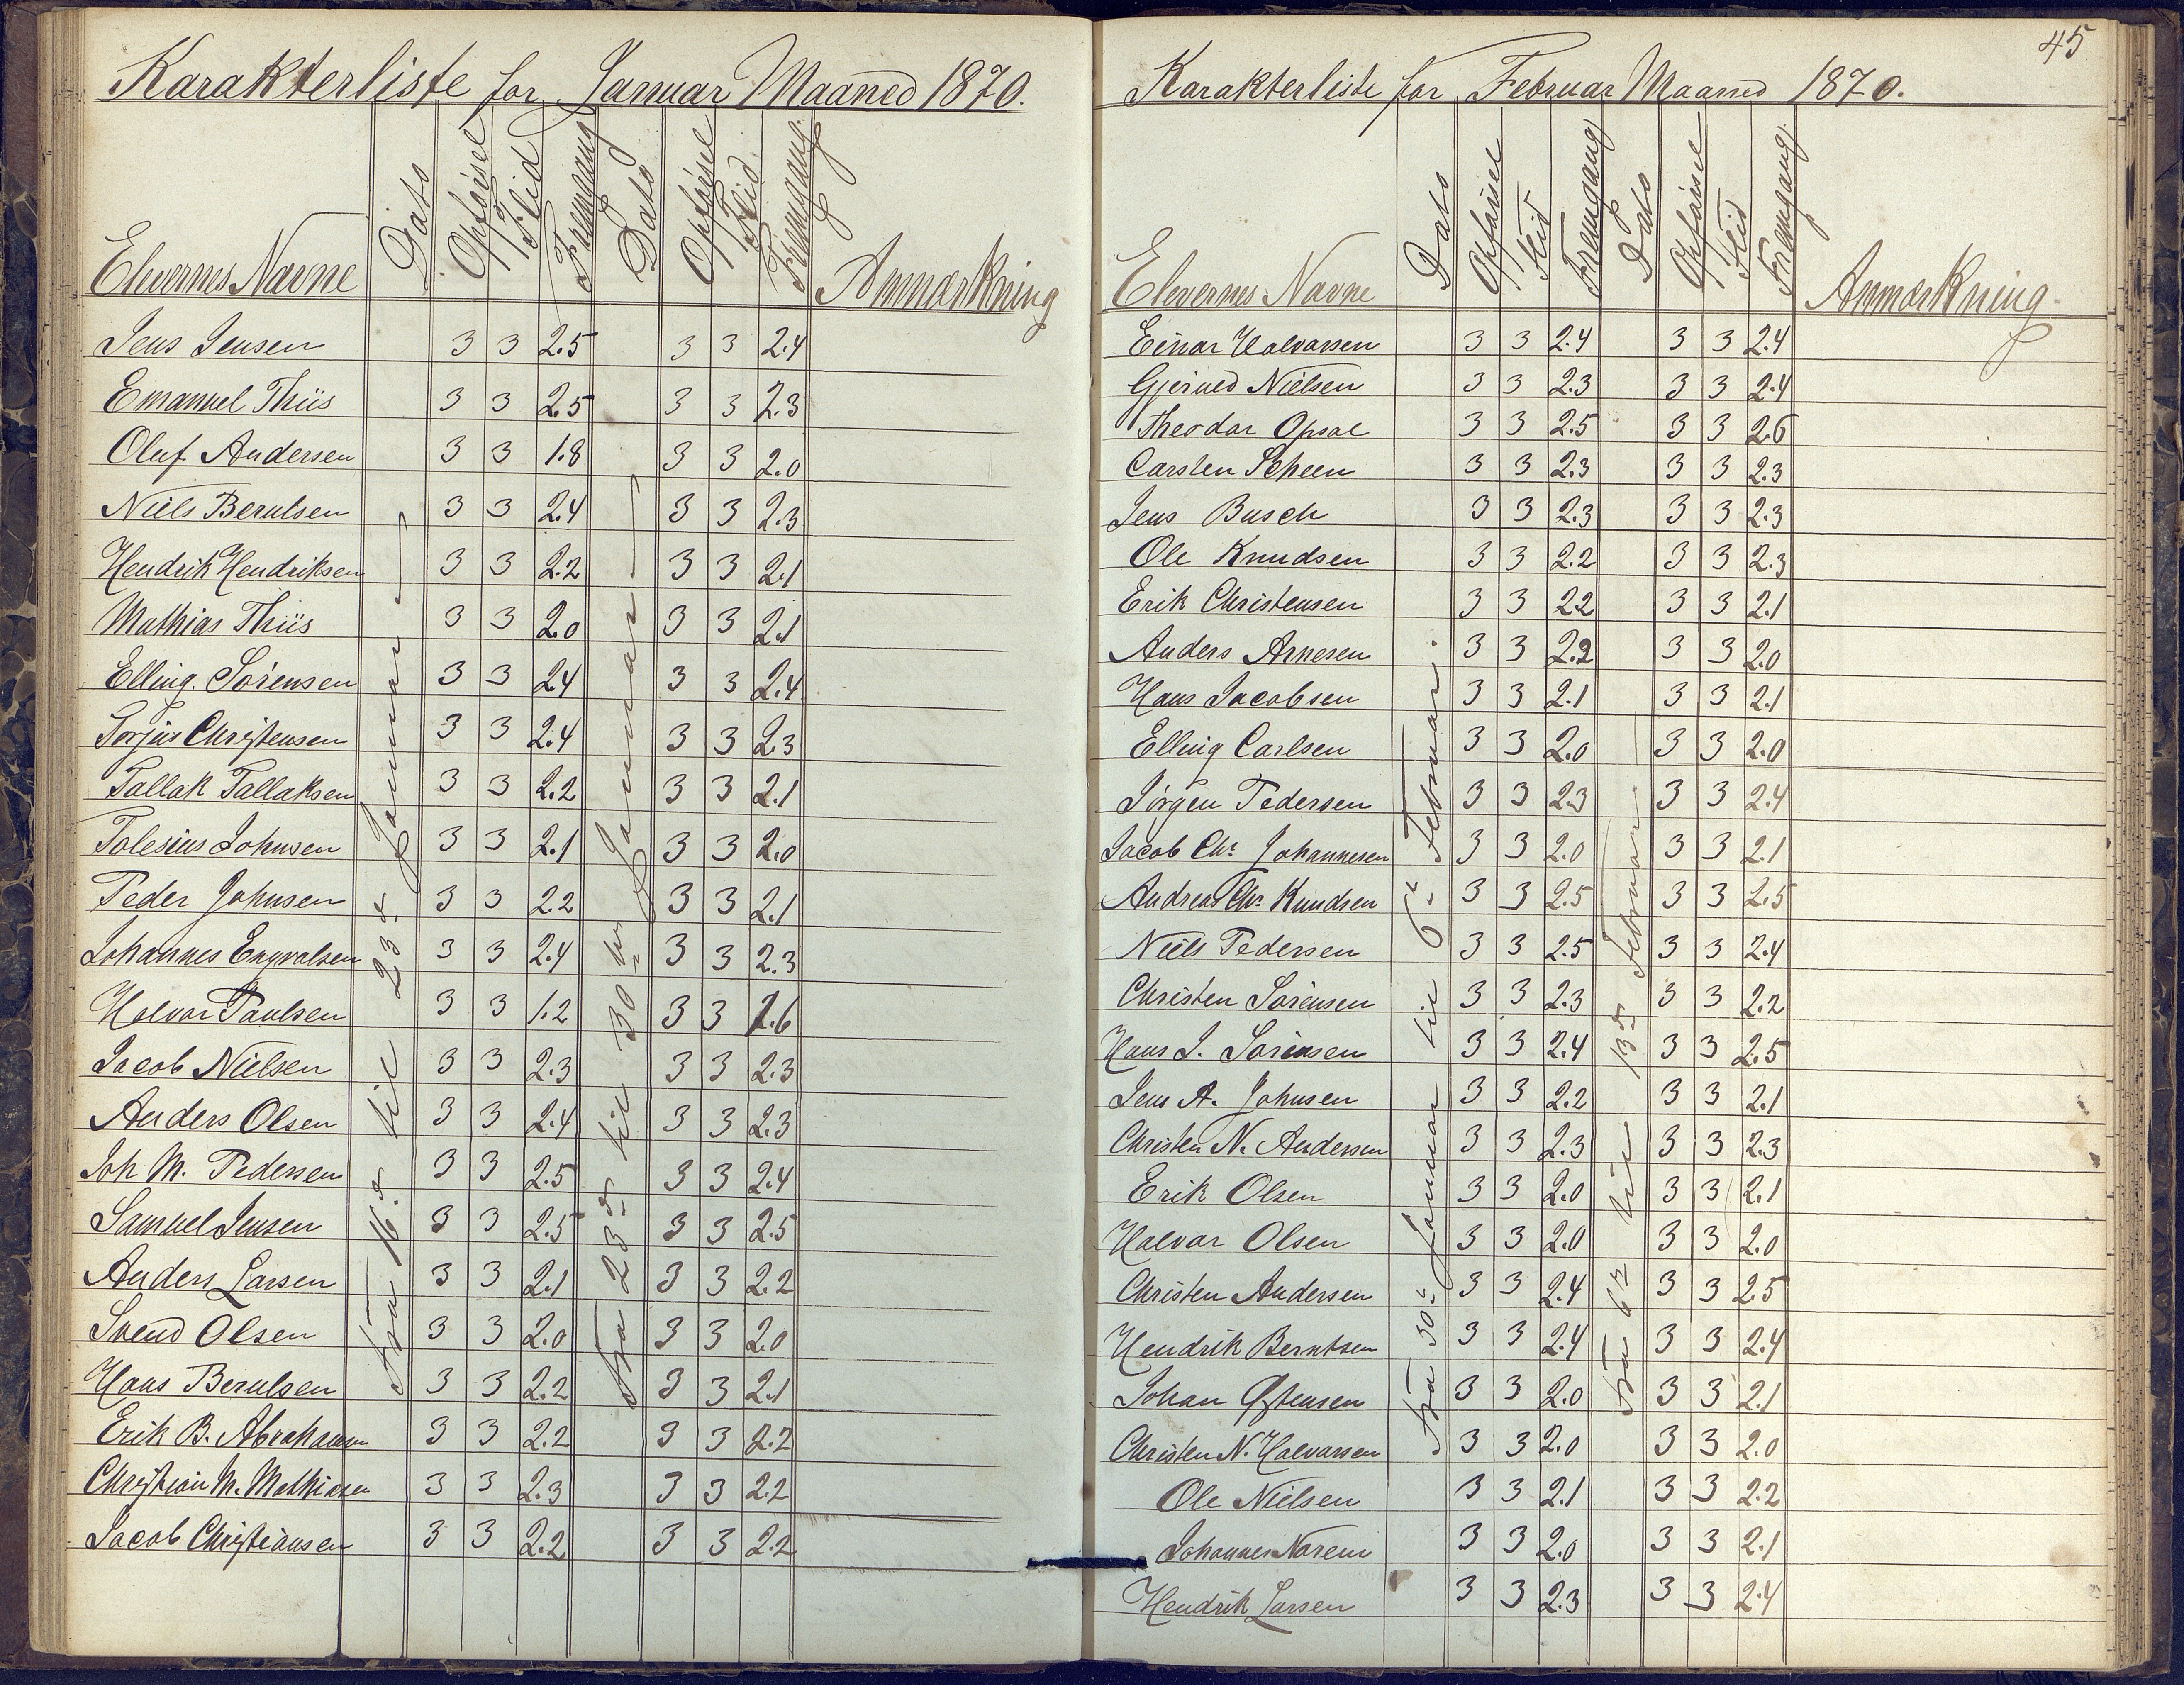 Karakterliste for Januar Maaned 1870.
Elevernes Navne Dato Opförsel Flid Fremgang Dato Opförsel Flid Fremgang Anmærkning
Fra 16.de til 23de Januar
Fra 23de til 30te Januar
Jens Jensen 3 3 2.5 3 3 2.4
Emanuel Thiis 3 3 2.5 3 3 2.3
Oluf Andersen 3 3 1.8 3 3 2.0
Niels Berulsen 3 3 2.4 3 3 2.3
Hendrik Hendriksen 3 3 2.2 3 3 2.1
Mathias Thiis 3 3 2.0 3 3 2.1
Elling Sörensen 3 3 2.4 3 3 2.4
Torjus Christensen 3 3 2.4 3 3 2.3
Tallak Tallaksen 3 3 2.2 3 3 2.1
Tolesius Johnsen 3 3 2.1 3 3 2.0
Peder Johnsen 3 3 2.2 3 3 2.1
Johannes Engvalsen 3 3 2.4 3 3 2.3
Halvor Paulsen 3 3 1.2 3 3 1.6
Jacob Nielsen 3 3 2.3 3 3 2.3
Anders Olsen 3 3 2.4 3 3 2.3
Joh M. Pedersen 3 3 2.5 3 3 2.4
Samuel Jensen 3 3 2.5 3 3 2.5
Anders Larsen 3 3 2.1 3 3 2.2
Svend Olsen 3 3 2.0 3 3 2.0
Hans Berulsen 3 3 2.2 3 3 2.1
Erik B. Abrahamsen 3 3 2.2 3 3 2.2
Christian M. Mathiasen 3 3 2.3 3 3 2.2
Jacob Christiansen 3 3 2.2 3 3 2.2
45
Karakterliste for Februar Maaned 1870.
Elevernes Navne Dato Opförsel Flid Fremgang Dato Opförsel Flid Fremgang Anmærkning
Fra 30te Januar til 6te Februar.
Fra 6te til 13de Februar.
Einar Halvorsen 3 3 2.4 3 3 2.4
Gjerued Nielsen 3 3 2.3 3 3 2.4
Theodor Opsal 3 3 2.5 3 3 2.6
Carsten Scheen 3 3 2.3 3 3 2.3
Jens Busch 3 3 2.3 3 3 2.3
Ole Knudsen 3 3 2.2 3 3 2.3
Erik Christensen 3 3 2.2 3 3 2.1
Anders Arnesen 3 3 2.2 3 3 2.0
Hans Jacobsen 3 3 2.1 3 3 2.1
Elling Carlsen 3 3 2.0 3 3 2.0
Jörgen Pedersen 3 3 2.3 3 3 2.4
Jacob Chr. Johannesen 3 3 2.0 3 3 2.1
Andreas Chr. Knudsen 3 3 2.5 3 3 2.5
Niels Pedersen 3 3 2.5 3 3 2.4
Christen Sörensen 3 3 2.3 3 3 2.2
Hans J. Sörensen 3 3 2.4 3 3 2.5
Jens A. Johnsen 3 3 2.2 3 3 2.1
Christen N. Andersen 3 3 2.3 3 3 2.3
Erik Olsen 3 3 2.0 3 3 2.1
Halvor Olsen 3 3 2.0 3 3 2.0
Christen Andersen 3 3 2.4 3 3 2.5
Hendrik Berntsen 3 3 2.4 3 3 2.4
Johan Östensen 3 3 2.0 3 3 2.1
Christen N. Halvorsen 3 3 2.0 3 3 2.0
Ole Nielsen 3 3 2.1 3 3 2.2
Johannes Norem 3 3 2.0 3 3 2.1
Hendrik Larsen 3 3 2.3 3 3 2.4